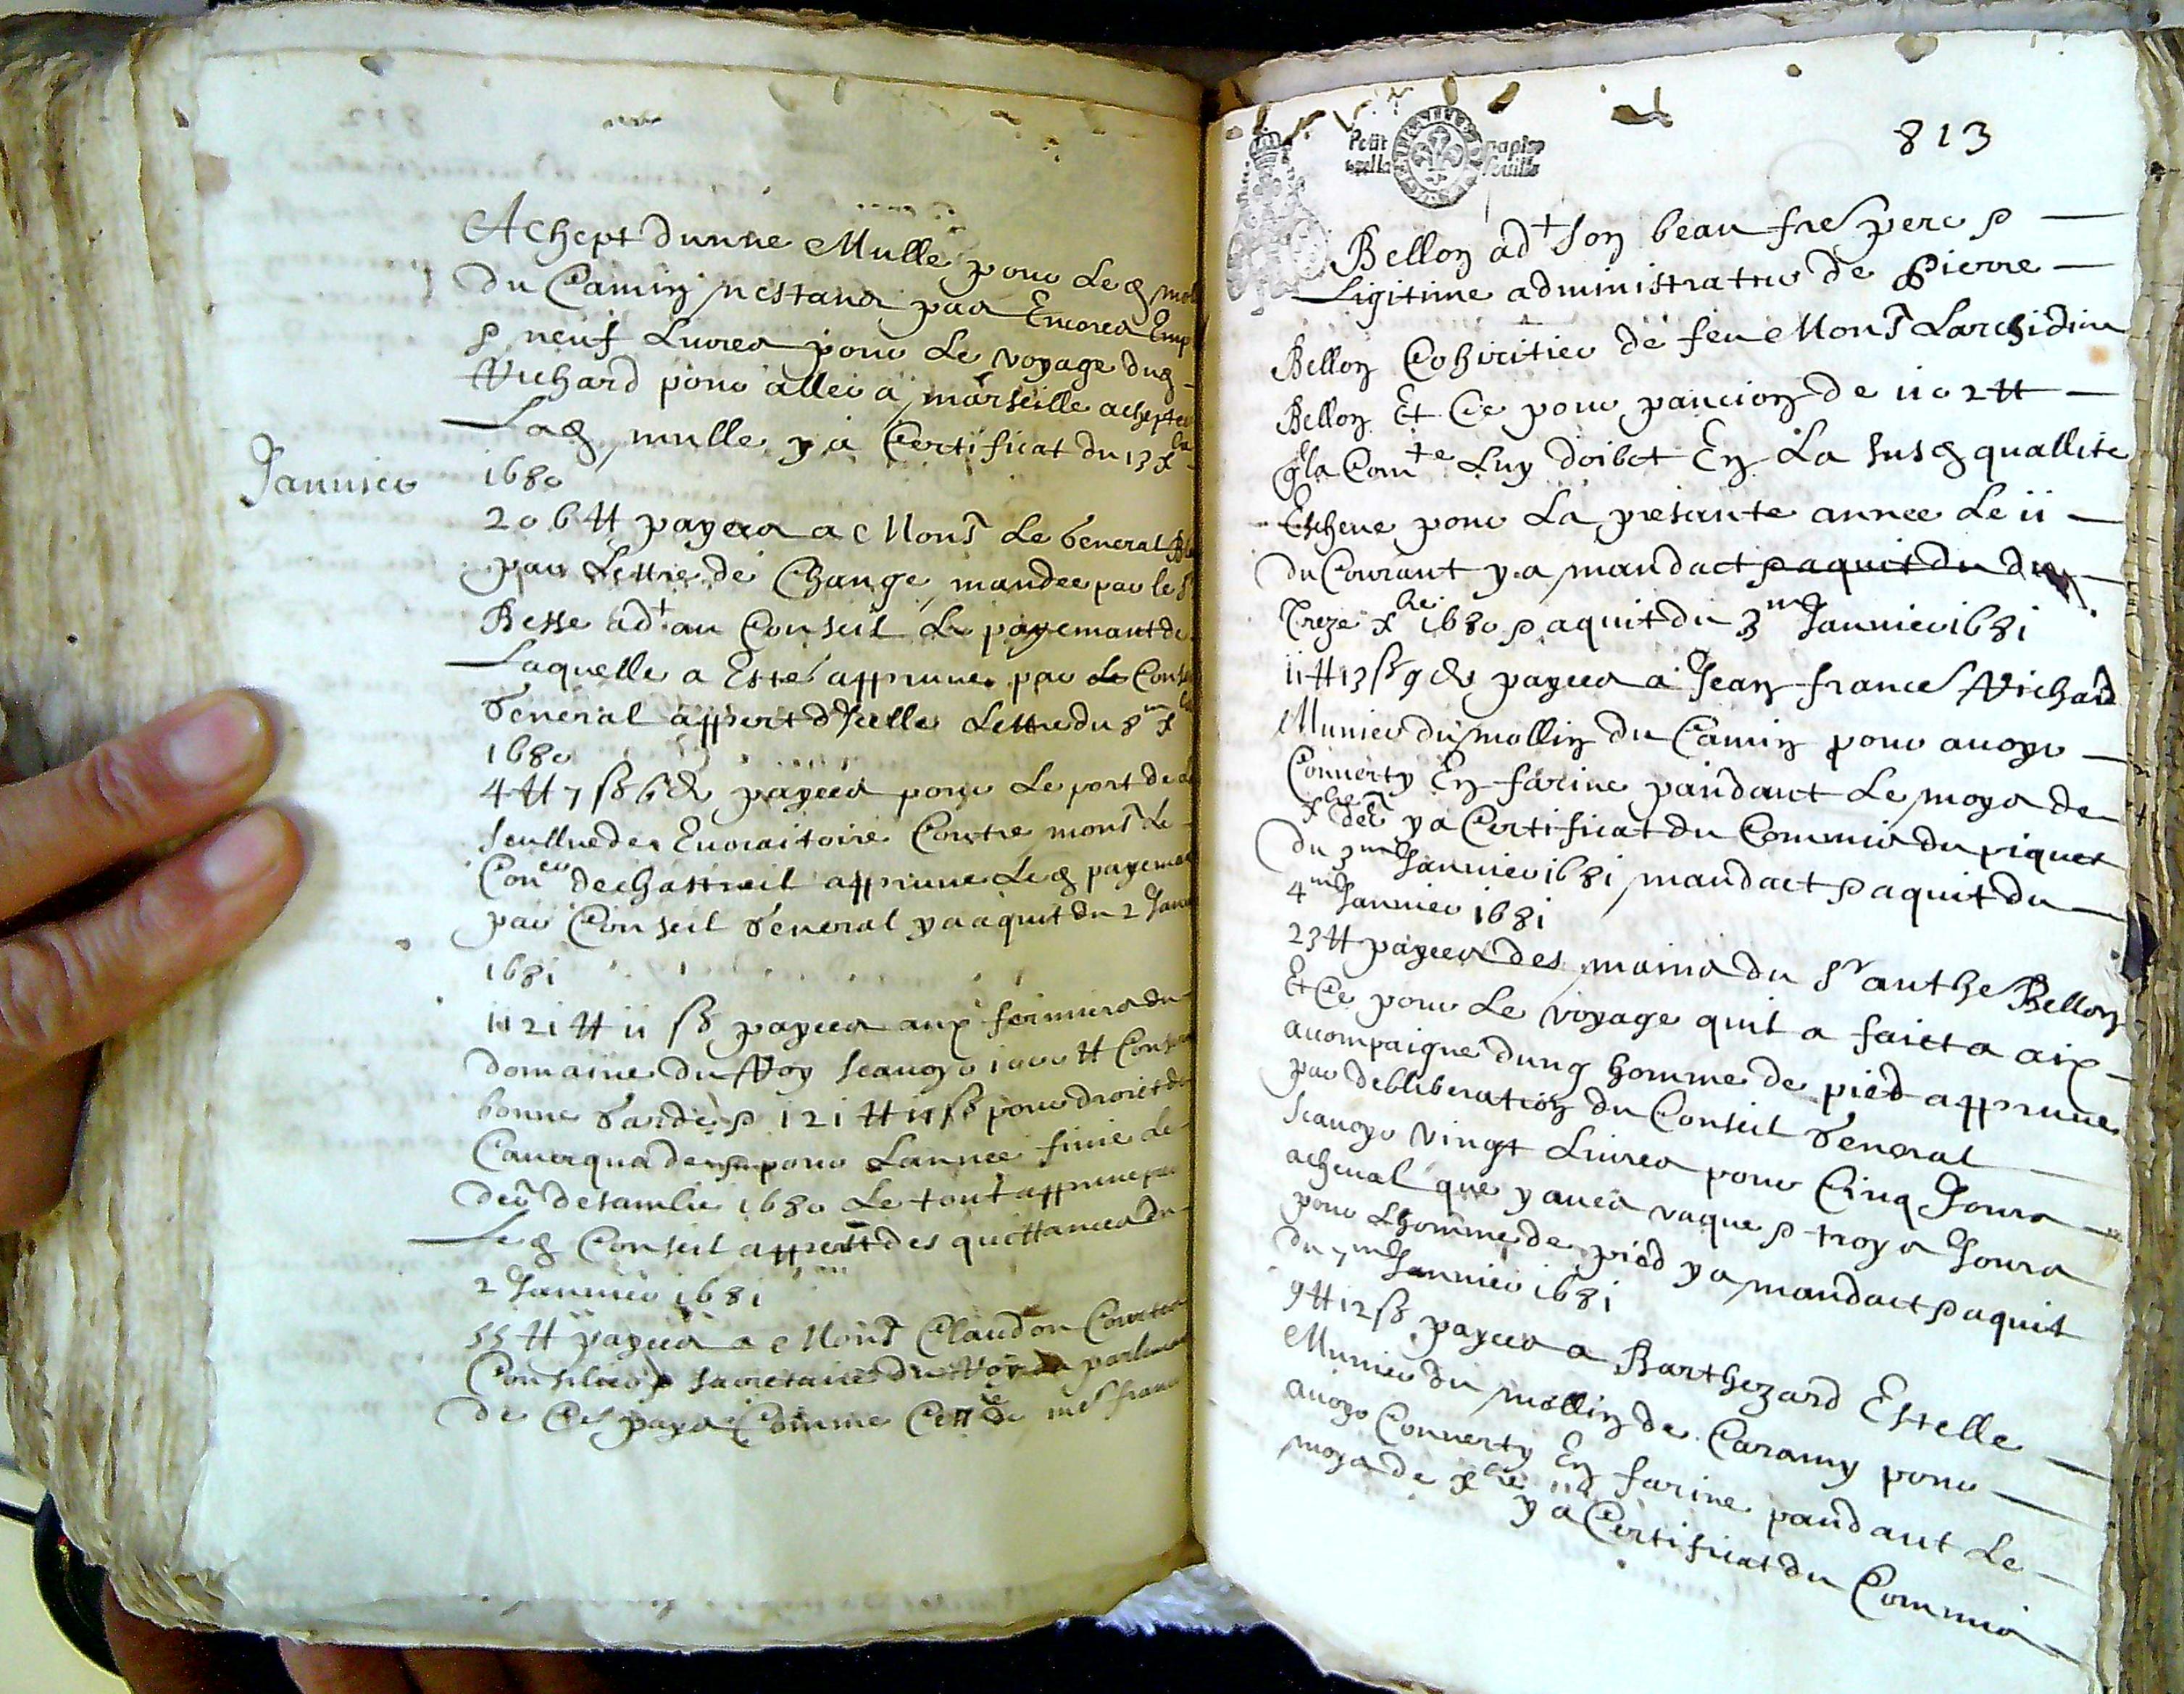 Achept dunne Mulle pour Led
du Camin nestans pas Encores
& neuf Livres pour Le voyage dud
Richard pour aller a marseille achepter
Lad mulle y a Certificat du 13 x
1680
Januier
206 ₶ payees a Monsr Le General
par Lettre de Change mandee par le sr
Besse adt au Conseil Le payemant de
Laquelle a Este appruue par Le
General appert dIcelle Lettre du 8me x
1680
4 ₶ 7 ss 6 d payees pour Le port de
Contre monsr de
Coner dechasteuil appruue Led
par Conseil General y a aquit du 2
1681
1121 ₶ 11 ss payees aux fermiers du
domaine du Roy scauoyr 1000 ₶
bonne Garde & 121 ₶ 11 ss pour droict de
Caualquades pour Lannee finie le
der desambre 1680 Le tout appruue par
Led Conseil appert des quittances du
2 Januier 1681
55 ₶ payees a Monsr Claudon
Conselier & secretaire du Roy
de Ces pays Comme
813
Petit papier
feuille
Bellon adt son beau frere pere &
Ligitime administratur de Pierre
Bellon Cohiritier de feu Monsr Larchidiacre
Bellon Et Ce pour pancion de 1102 ₶
qla Comte Luy doibet En La susd quallite
Escheue pour La presante annee Le 11
du Courant y a mandact & aquit du du
Treze xbre 1680 & aquit du 3me Januier 1681
11 ₶ 13 ss 9 d payees a Jean frances Richard
Munier du mollin du Camin pour auoyr
Conuerty En farine pandant Le moys de
xbre der y a Certificat du Commis du piquet
du 3me Januier 1681 mandact & aquit du
4me Januier 1681
23 ₶ payees des mains du sr anthe Bellon
Et Ce pour Le voyage quil a faict a aix
acompaigne dung homme de pied appruue
par debliberation du Conseil General
scauoyr vingt Liures pour Cinq Jours
acheual que y auet vaque & troys Jours
pour Lhomme de pied y a mandact & aquit
du 7me Januier 1681
9 ₶ 12 ss payees a Barthezard Estelle
Munier du mollin de Caramy pour
auoyr Conuerty En farine pandant Le
moys de xbre y a Certificat du Commis